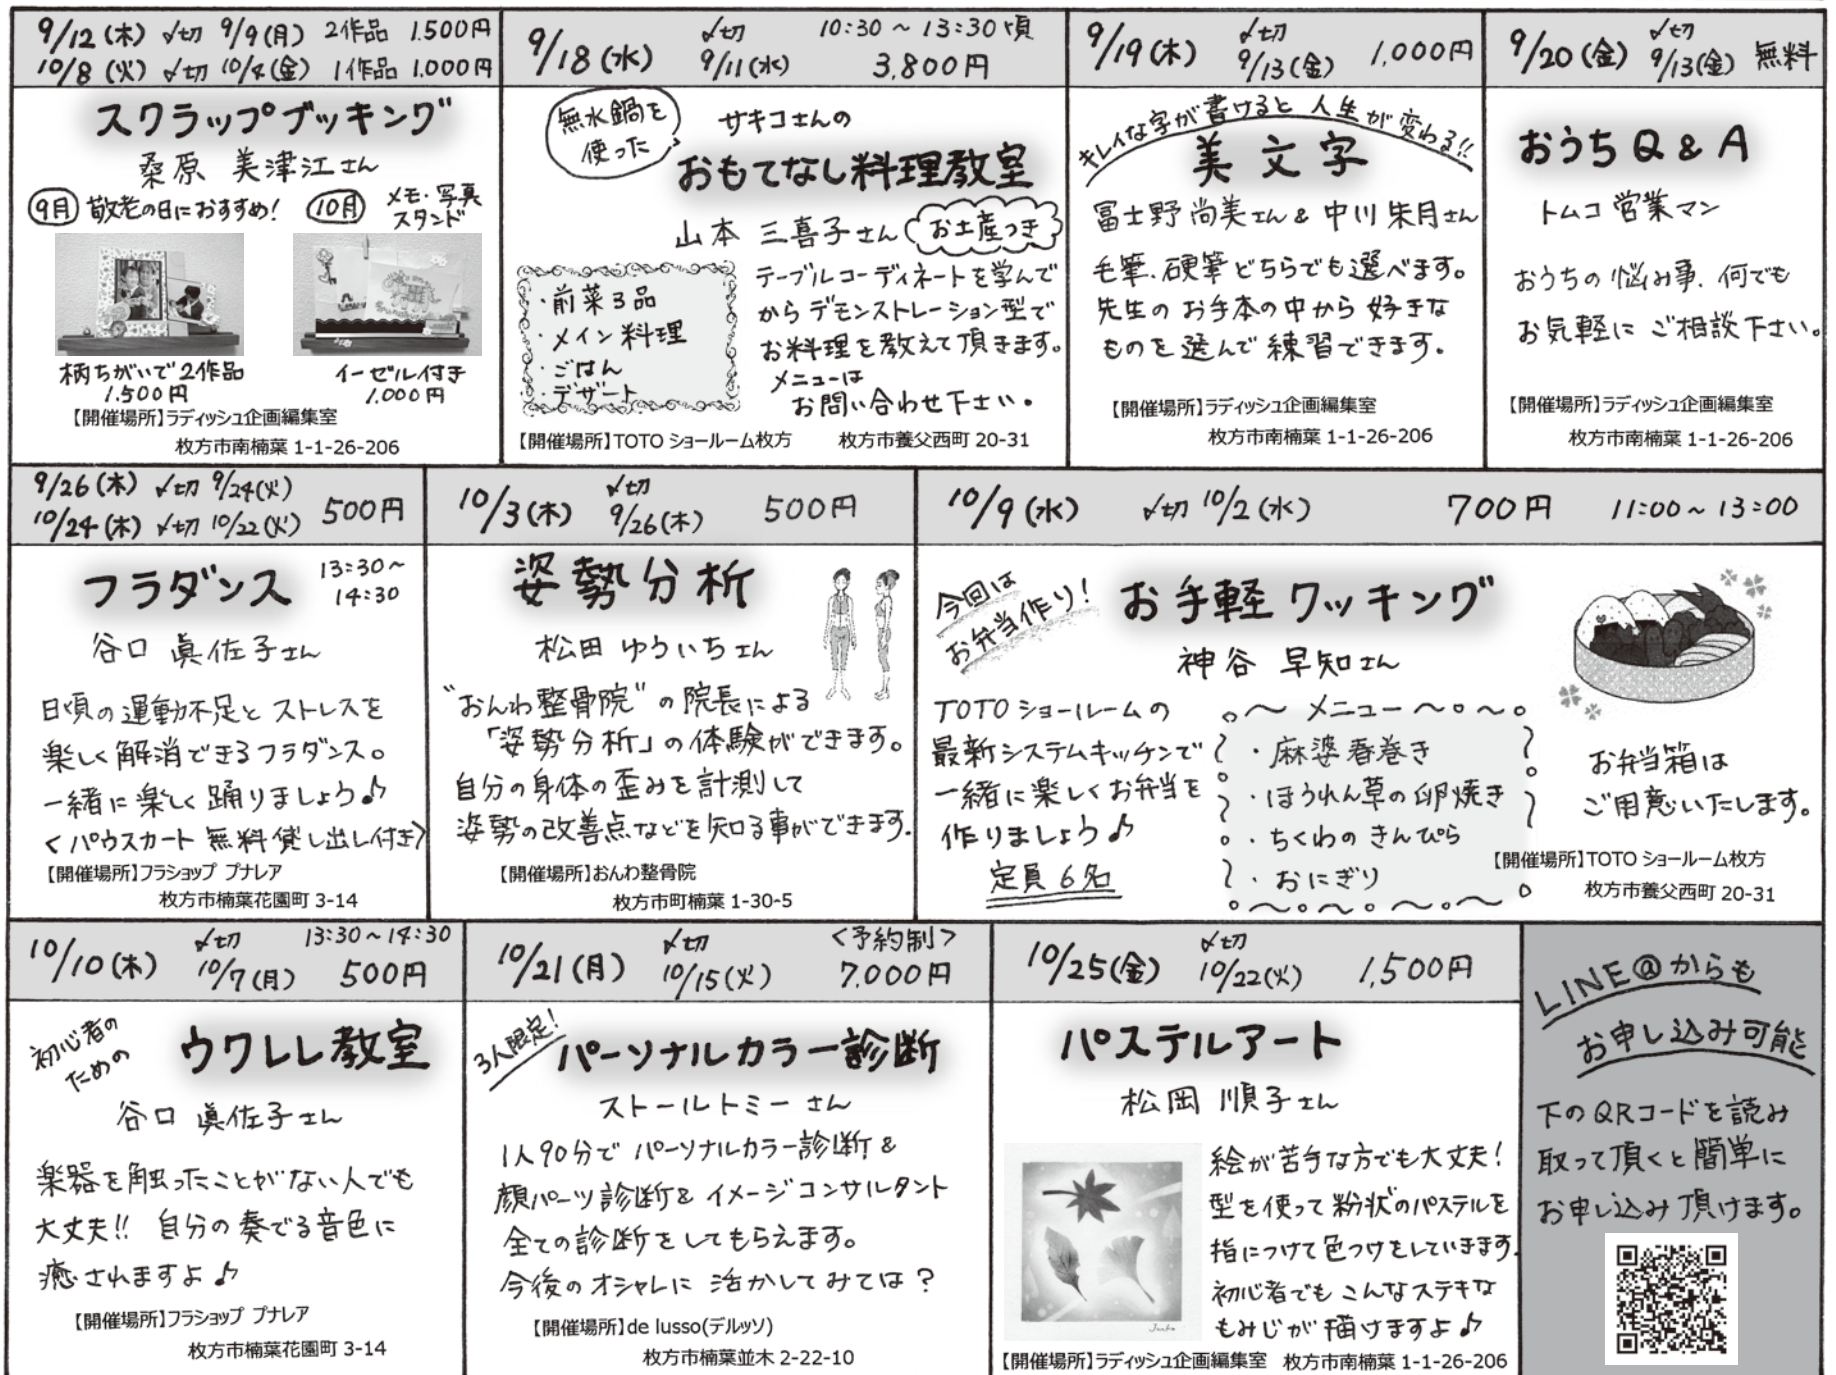 9/12(木) 〆切 9/9(月) 2作品 1.500円
10/8(火) 〆切 10/4(金) 1作品 1.000円
スクラップブッキング
桑原 美津江さん
9月 敬老の日におすすめ!
10月 メモ・写真
スタンド
柄ちがいで2作品
1.500円
イーゼル付き
1.000円
【開催場所】ラディッシュ企画編集室
枚方市南楠葉 1-1-26-206
9/18(水) 〆切 9/11(水) 10:30~13:30頃
3.800円
無水鍋を
使った
サキコさんの
おもてなし料理教室
山本 三喜子さん
お土産つき
・前菜3品
・メイン料理
・ごはん
・デザート
テーブルコーディネートを学んで
からデモンストレーション型で
お料理を教えて頂きます。
メニューは
お問い合わせ下さい。
【開催場所】TOTO ショールーム枚方 枚方市養父西町 20-31
9/19(木) 〆切 9/13(金) 1,000円
キレイな字が書けると人生が変わる!!
美文字
冨士野 尚美さん & 中川 朱月さん
毛筆、硬筆どちらでも選べます。
先生のお手本の中から好きな
ものを選んで練習できます。
【開催場所】ラディッシュ企画編集室
枚方市南楠葉 1-1-26-206
9/20(金) 〆切 9/13(金) 無料
おうちQ&A
トムコ営業マン
おうちの悩み事、何でも
お気軽にご相談下さい。
【開催場所】ラディッシュ企画編集室
枚方市南楠葉 1-1-26-206
9/26(木) 〆切 9/24(火)
10/24(木) 〆切 10/22(火) 500円
フラダンス
13:30~
14:30
谷口 眞佐子さん
日頃の運動不足とストレスを
楽しく解消できるフラダンス。
一緒に楽しく踊りましょう♪
<パウスカート無料貸し出し付き>
【開催場所】フラショップ プナレア
枚方市楠葉花園町 3-14
10/3(木) 〆切 9/26(木) 500円
姿勢分析
松田 ゆういちさん
"おんわ整骨院"の院長による
「姿勢分析」の体験ができます。
自分の身体の歪みを計測して
姿勢の改善点などを知る事ができます。
【開催場所】おんわ整骨院
枚方市町楠葉 1-30-5
10/9(水) 〆切 10/2(水) 700円 11:00~13:00
今回は
お弁当作り!
お手軽クッキング
神谷 早知さん
TOTOショールームの
最新システムキッチンで
一緒に楽しくお弁当を
作りましょう♪
定員6名
メニュー
・麻婆春巻き
・ほうれん草の卵焼き
・ちくわのきんぴら
・おにぎり
お弁当箱は
ご用意いたします。
【開催場所】TOTO ショールーム枚方
枚方市養父西町 20-31
10/10(木) 〆切 10/7(月) 13:30~14:30
500円
初心者の
ための
ウクレレ教室
谷口 眞佐子さん
楽器を触ったことがない人でも
大丈夫!! 自分の奏でる音色に
癒されますよ♪
【開催場所】フラショップ プナレア
枚方市楠葉花園町 3-14
10/21(月) 〆切 10/15(火) <予約制>
7.000円
3人限定!
パーソナルカラー診断
ストールトミーさん
1人90分でパーソナルカラー診断&
顔パーツ診断&イメージコンサルタント
全ての診断をしてもらえます。
今後のオシャレに活かしてみては?
【開催場所】de lusso(デルッソ)
枚方市楠葉並木 2-22-10
10/25(金) 〆切 10/22(火) 1,500円
パステルアート
松岡 順子さん
絵が苦手な方でも大丈夫!
型を使って粉状のパステルを
指につけて色つけをしていきます。
初心者でもこんなステキな
もみじが描けますよ♪
【開催場所】ラディッシュ企画編集室 枚方市南楠葉 1-1-26-206
LINE@からも
お申し込み可能
下のQRコードを読み
取って頂くと簡単に
お申し込み頂けます。